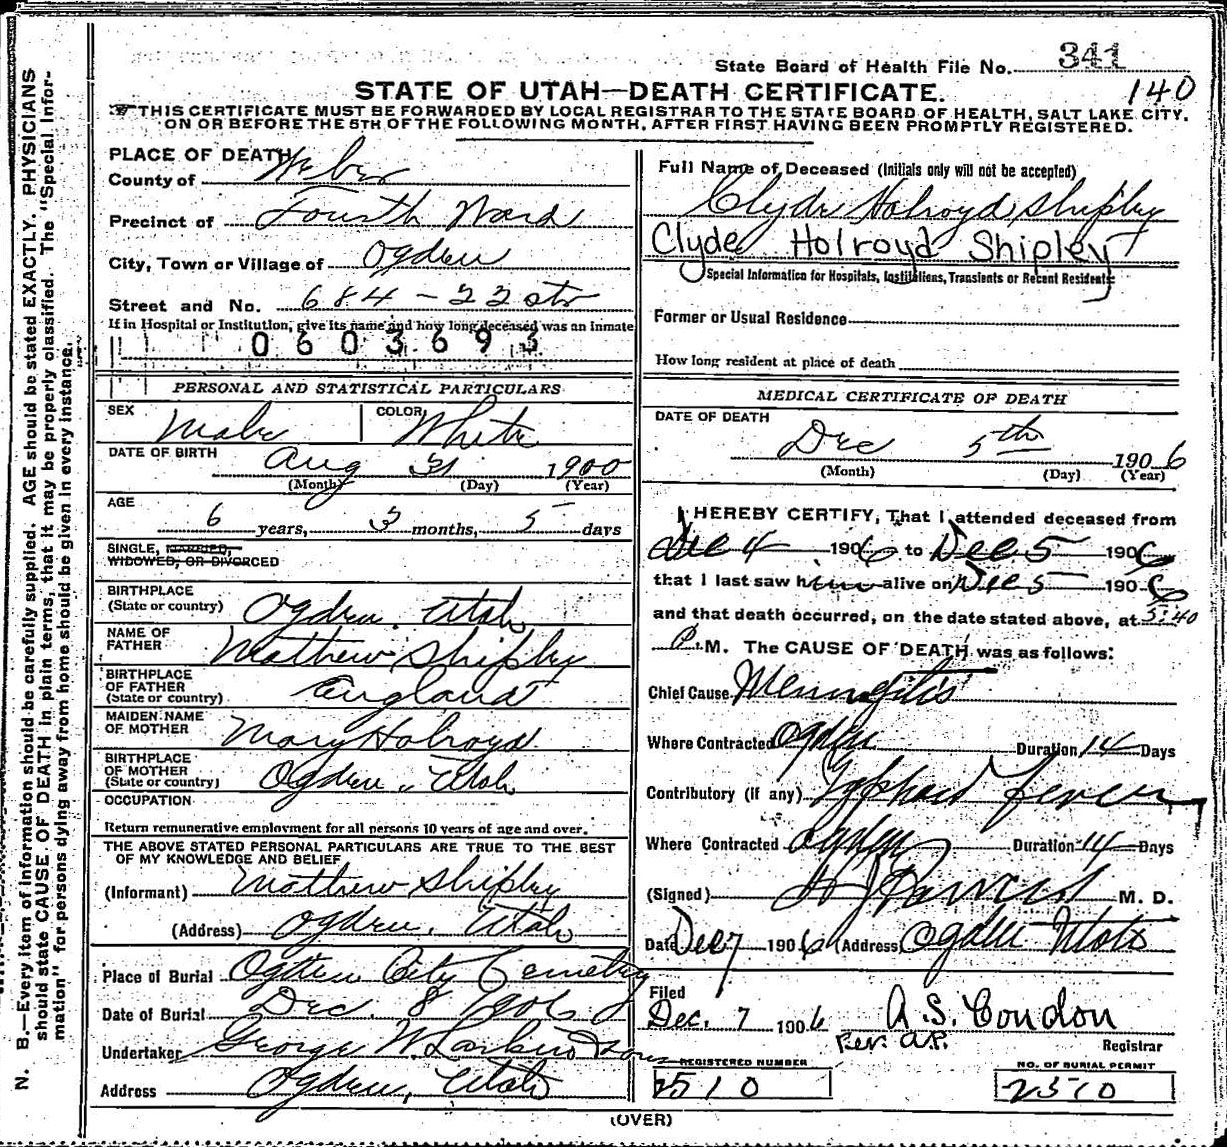 State Board of Health File No. 341
140
STATE OF UTAH—DEATH CERTIFICATE.
THIS CERTIFICATE MUST BE FORWARDED BY LOCAL REGISTRAR TO THE STATE BOARD OF HEALTH, SALT LAKE CITY,
ON OR BEFORE THE 5TH OF THE FOLLOWING MONTH, AFTER FIRST HAVING BEEN PROMPTLY REGISTERED.
N. B.—Every item of information should be carefully supplied. AGE should be stated EXACTLY. PHYSICIANS
should state CAUSE OF DEATH in plain terms, that it may be properly classified. The "Special Infor-
mation" for persons dying away from home should be given in every instance.
PLACE OF DEATH
County of Weber
Precinct of Fourth Ward
City, Town or Village of Ogden
Street and No. 684 - 22 str
If in Hospital or Institution, give its name and how long deceased was an inmate
0603693
PERSONAL AND STATISTICAL PARTICULARS
SEX Male COLOR White
DATE OF BIRTH Aug 31 1900
(Month) (Day) (Year)
AGE
6 years, 3 months, 5 days
SINGLE, MARRIED,
WIDOWED, OR DIVORCED
BIRTHPLACE
(State or country) Ogden, Utah
NAME OF
FATHER Matthew Shipley
BIRTHPLACE
OF FATHER
(State or country) England
MAIDEN NAME
OF MOTHER Mary Holroyd
BIRTHPLACE
OF MOTHER
(State or country) Ogden, Utah
OCCUPATION
Return remunerative employment for all persons 10 years of age and over.
THE ABOVE STATED PERSONAL PARTICULARS ARE TRUE TO THE BEST
OF MY KNOWLEDGE AND BELIEF
(Informant) Matthew Shipley
(Address) Ogden, Utah
Place of Burial Ogden City Cemetery
Date of Burial Dec. 8 1906
Undertaker George W. Larkin & Sons
Address Ogden, Utah
Full Name of Deceased (Initials only will not be accepted)
Clyde Holroyd Shipley
Clyde Holroyd Shipley
Special Information for Hospitals, Institutions, Transients or Recent Residents
Former or Usual Residence
How long resident at place of death
MEDICAL CERTIFICATE OF DEATH
DATE OF DEATH
Dec 5th 1906
(Month) (Day) (Year)
I HEREBY CERTIFY, That I attended deceased from
Dec 4 1906 to Dec 5 1906
that I last saw him alive on Dec 5 1906
and that death occurred, on the date stated above, at 5:40
P. M. The CAUSE OF DEATH was as follows:
Chief Cause Meningitis
Where Contracted Ogden Duration 14 Days
Contributory (if any) Typhoid fever
Where Contracted Ogden Duration 14 Days
(Signed) M. D.
Date Dec 7 1906 (Address) Ogden Utah
Filed
Dec. 7 1906 A.S. Condon
Per. A.P. Registrar
REGISTERED NUMBER
2510
NO. OF BURIAL PERMIT
2510
(OVER)